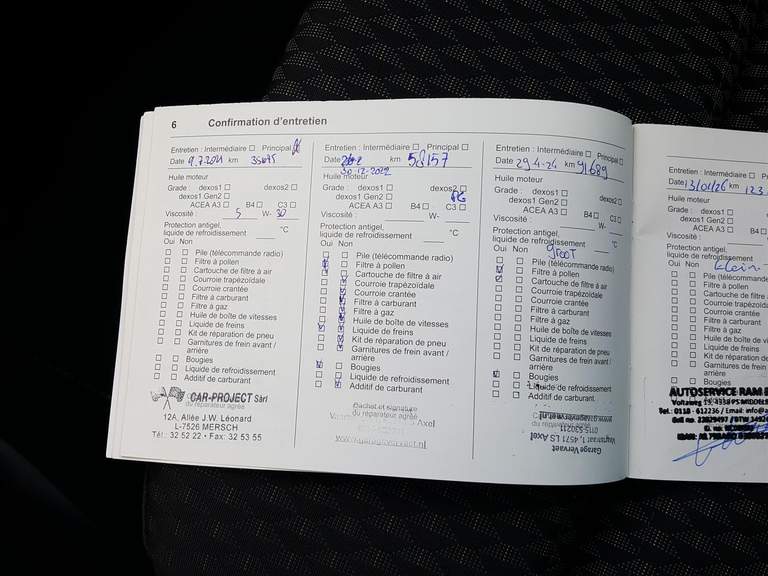 6 Confirmation d'entretien
Entretien : Intermédiaire Principal
Date 9.7.2021 km 35075
Huile moteur
Grade : dexos1 dexos2
dexos1 Gen2
ACEA A3 B4 C3
Viscosité : 5 W- 30
Protection antigel,
liquide de refroidissement °C
Oui Non
Pile (télécommande radio)
Filtre à pollen
Cartouche de filtre à air
Courroie trapézoïdale
Courroie crantée
Filtre à carburant
Filtre à gaz
Huile de boîte de vitesses
Liquide de freins
Kit de réparation de pneu
Garnitures de frein avant /
arrière
Bougies
Liquide de refroidissement
Additif de carburant
du réparateur agréé
CAR-PROJECT Sàrl
12A, Allée J.W. Léonard
L-7526 MERSCH
Tél : 32 52 22 • Fax: 32 53 55
Entretien : Intermédiaire Principal
Date km 58157
30-12-2022
Huile moteur
Grade : dexos1 dexos2
dexos1 Gen2
ACEA A3 B4 C3
Viscosité : W-
Protection antigel,
liquide de refroidissement °C
Oui Non
Pile (télécommande radio)
Filtre à pollen
Cartouche de filtre à air
Courroie trapézoïdale
Courroie crantée
Filtre à carburant
Filtre à gaz
Huile de boîte de vitesses
Liquide de freins
Kit de réparation de pneu
Garnitures de frein avant /
arrière
Bougies
Liquide de refroidissement
Additif de carburant
Cachet et signature
du réparateur agréé
Axel
www.garagevervaet.nl
Entretien : Intermédiaire Principal
Date 29-4-24 km 91689
Huile moteur
Grade : dexos1 dexos2
dexos1 Gen2
ACEA A3 B4 C3
Viscosité : W-
Protection antigel,
liquide de refroidissement °C
Oui Non groot
Pile (télécommande radio)
Filtre à pollen
Cartouche de filtre à air
Courroie trapézoïdale
Courroie crantée
Filtre à carburant
Filtre à gaz
Huile de boîte de vitesses
Liquide de freins
Kit de réparation de pneu
Garnitures de frein avant /
arrière
Bougies
Liquide de refroidissement
Additif de carburant
www.garagevervaet.nl
Garage Vervaet
Entretien : Intermédiaire
Date 13/01/26 km 123
Huile moteur
Grade : dexos1
dexos1 Gen2
ACEA A3 B4
Viscosité :
Protection antigel,
liquide de refroidissement
Oui Non klein
Pile (télécommande
Filtre à pollen
Cartouche de filtre à
Courroie trapézoïdale
Courroie crantée
Filtre à carburant
Filtre à gaz
Huile de boîte de
Liquide de freins
Kit de réparation de
Garnitures de frein
arrière
Bougies
Liquide de refroidiss
Additif de carburant
AUTOSERVICE RAM
Tel.: 0118 - 612236 / Email: info@